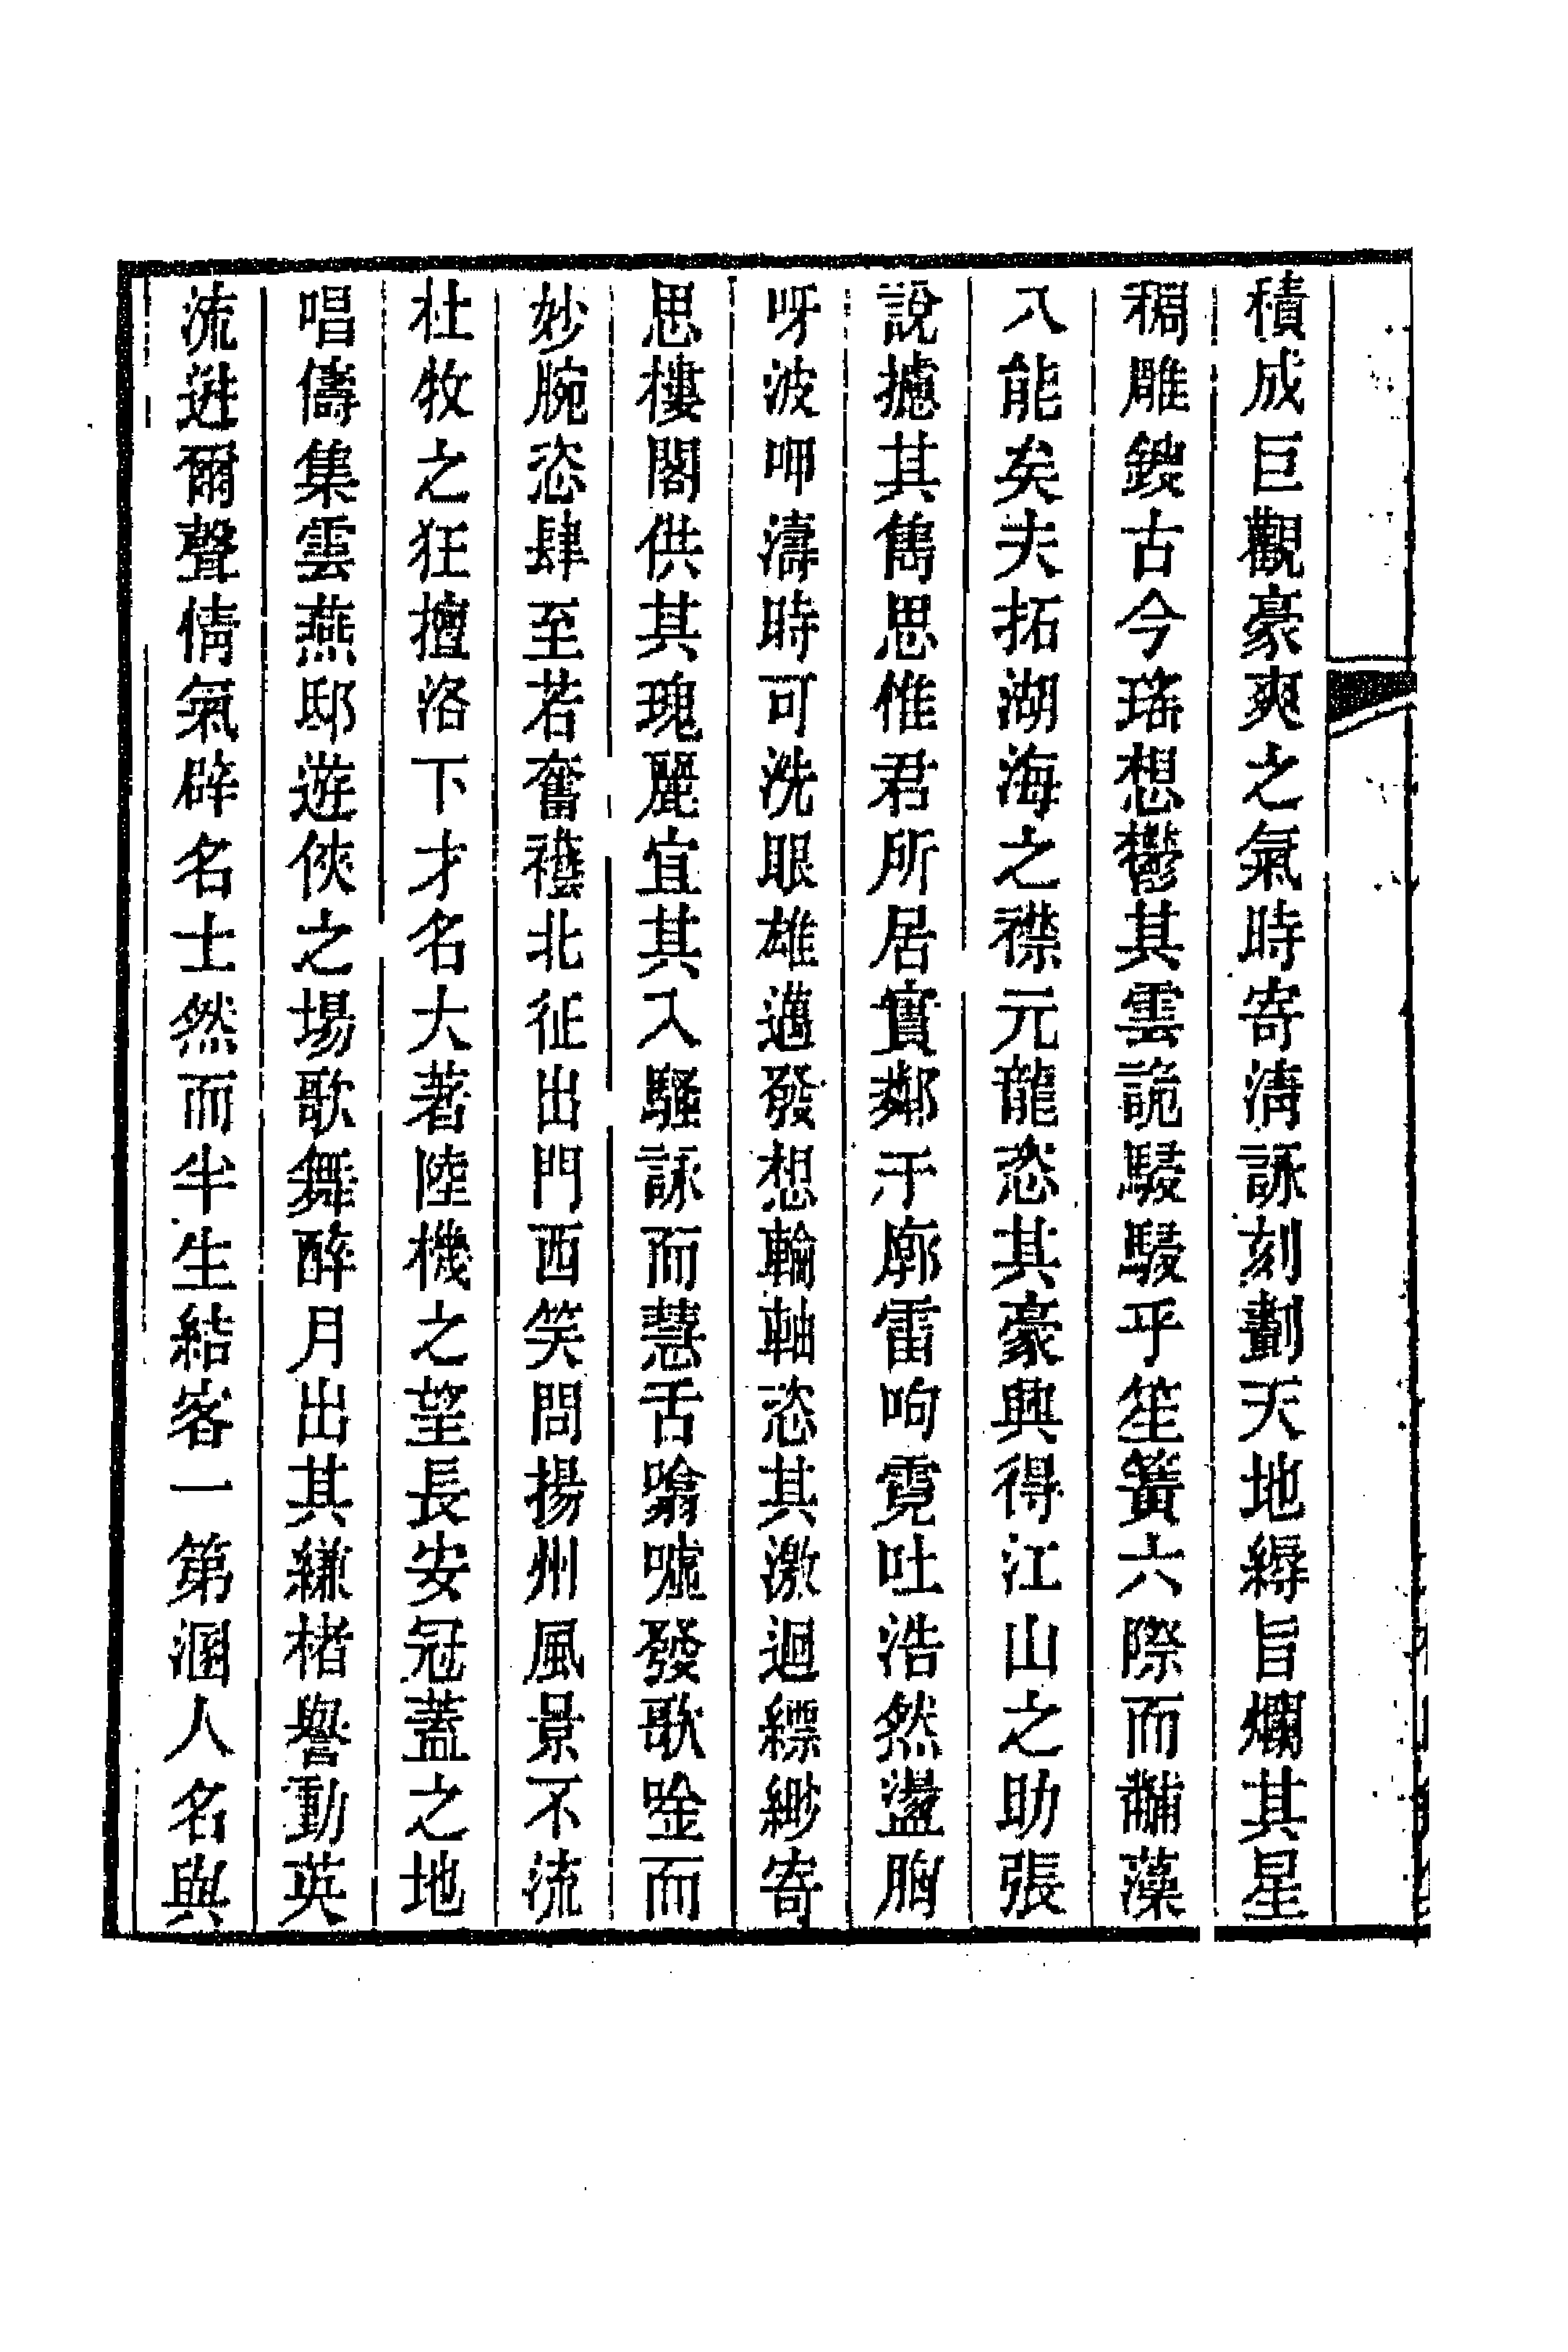 積成巨觀豪爽之氣時寄清詠刻劃天地縟旨爛其星
稠雕鎪古今瑤想鬱其雲詭駸駸乎笙簧六際而黼藻
八能矣夫拓湖海之襟元龍恣其豪興得江山之助張
說攄其雋思惟君所居實鄰于廓雷呴霓吐浩然盪胸
呀波呷濤時可洗眼雄邁發想輪軸恣其激迴縹緲寄
思樓閣供其瑰麗宜其入騷詠而慧舌噏噓發歌唫而
妙腕恣肆至若奮䙝北征出門西笑問揚州風景不流
杜牧之狂擅洛下才名大著陸機之望長安冠蓋之地
唱儔集雲燕邸遊俠之場歌舞醉月出其縑楮譽動英
流迸爾聲情氣辟名士然而半生結客一第溷人名與